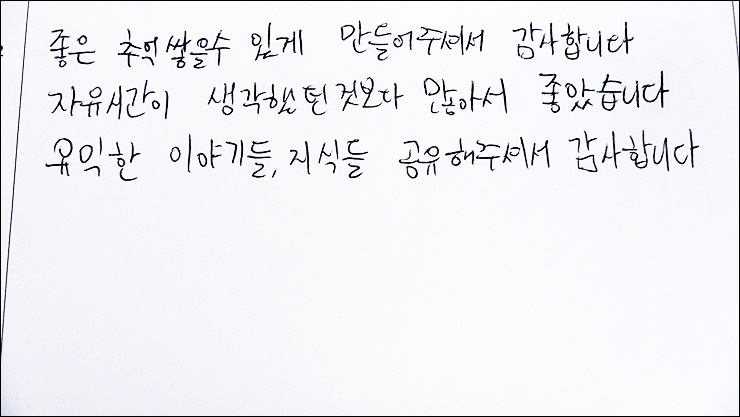 좋은 추억 쌓을수 있게 만들어주셔서 감사합니다
자유시간이 생각했던것보다 많아서 좋았습니다
유익한 이야기들, 지식들 공유해주셔서 감사합니다